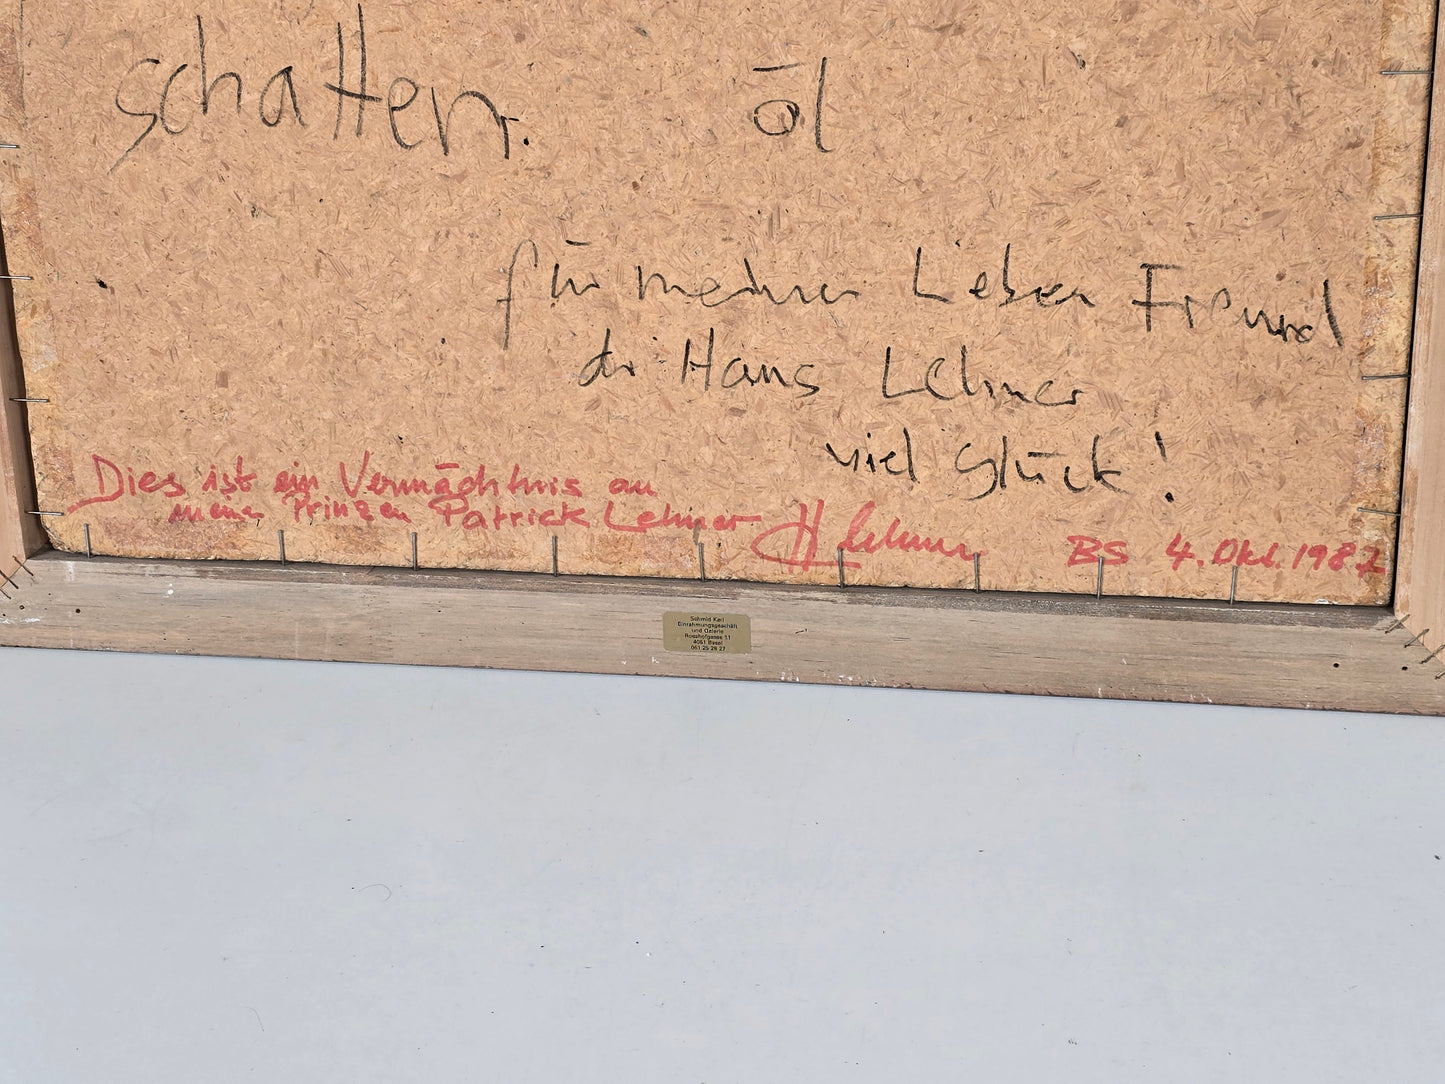 schatten. öl
für meinen Lieben Freund
dr Hans Lehner
viel Glück!
Dies ist ein Vermächtnis an
meinen Prinzen Patrick Lehner H Lehner BS 4. Okt. 1987
Schmid Karl
Einrahmungsgeschäft
und Galerie
Rosshofgasse 11
4051 Basel
061 25 28 27